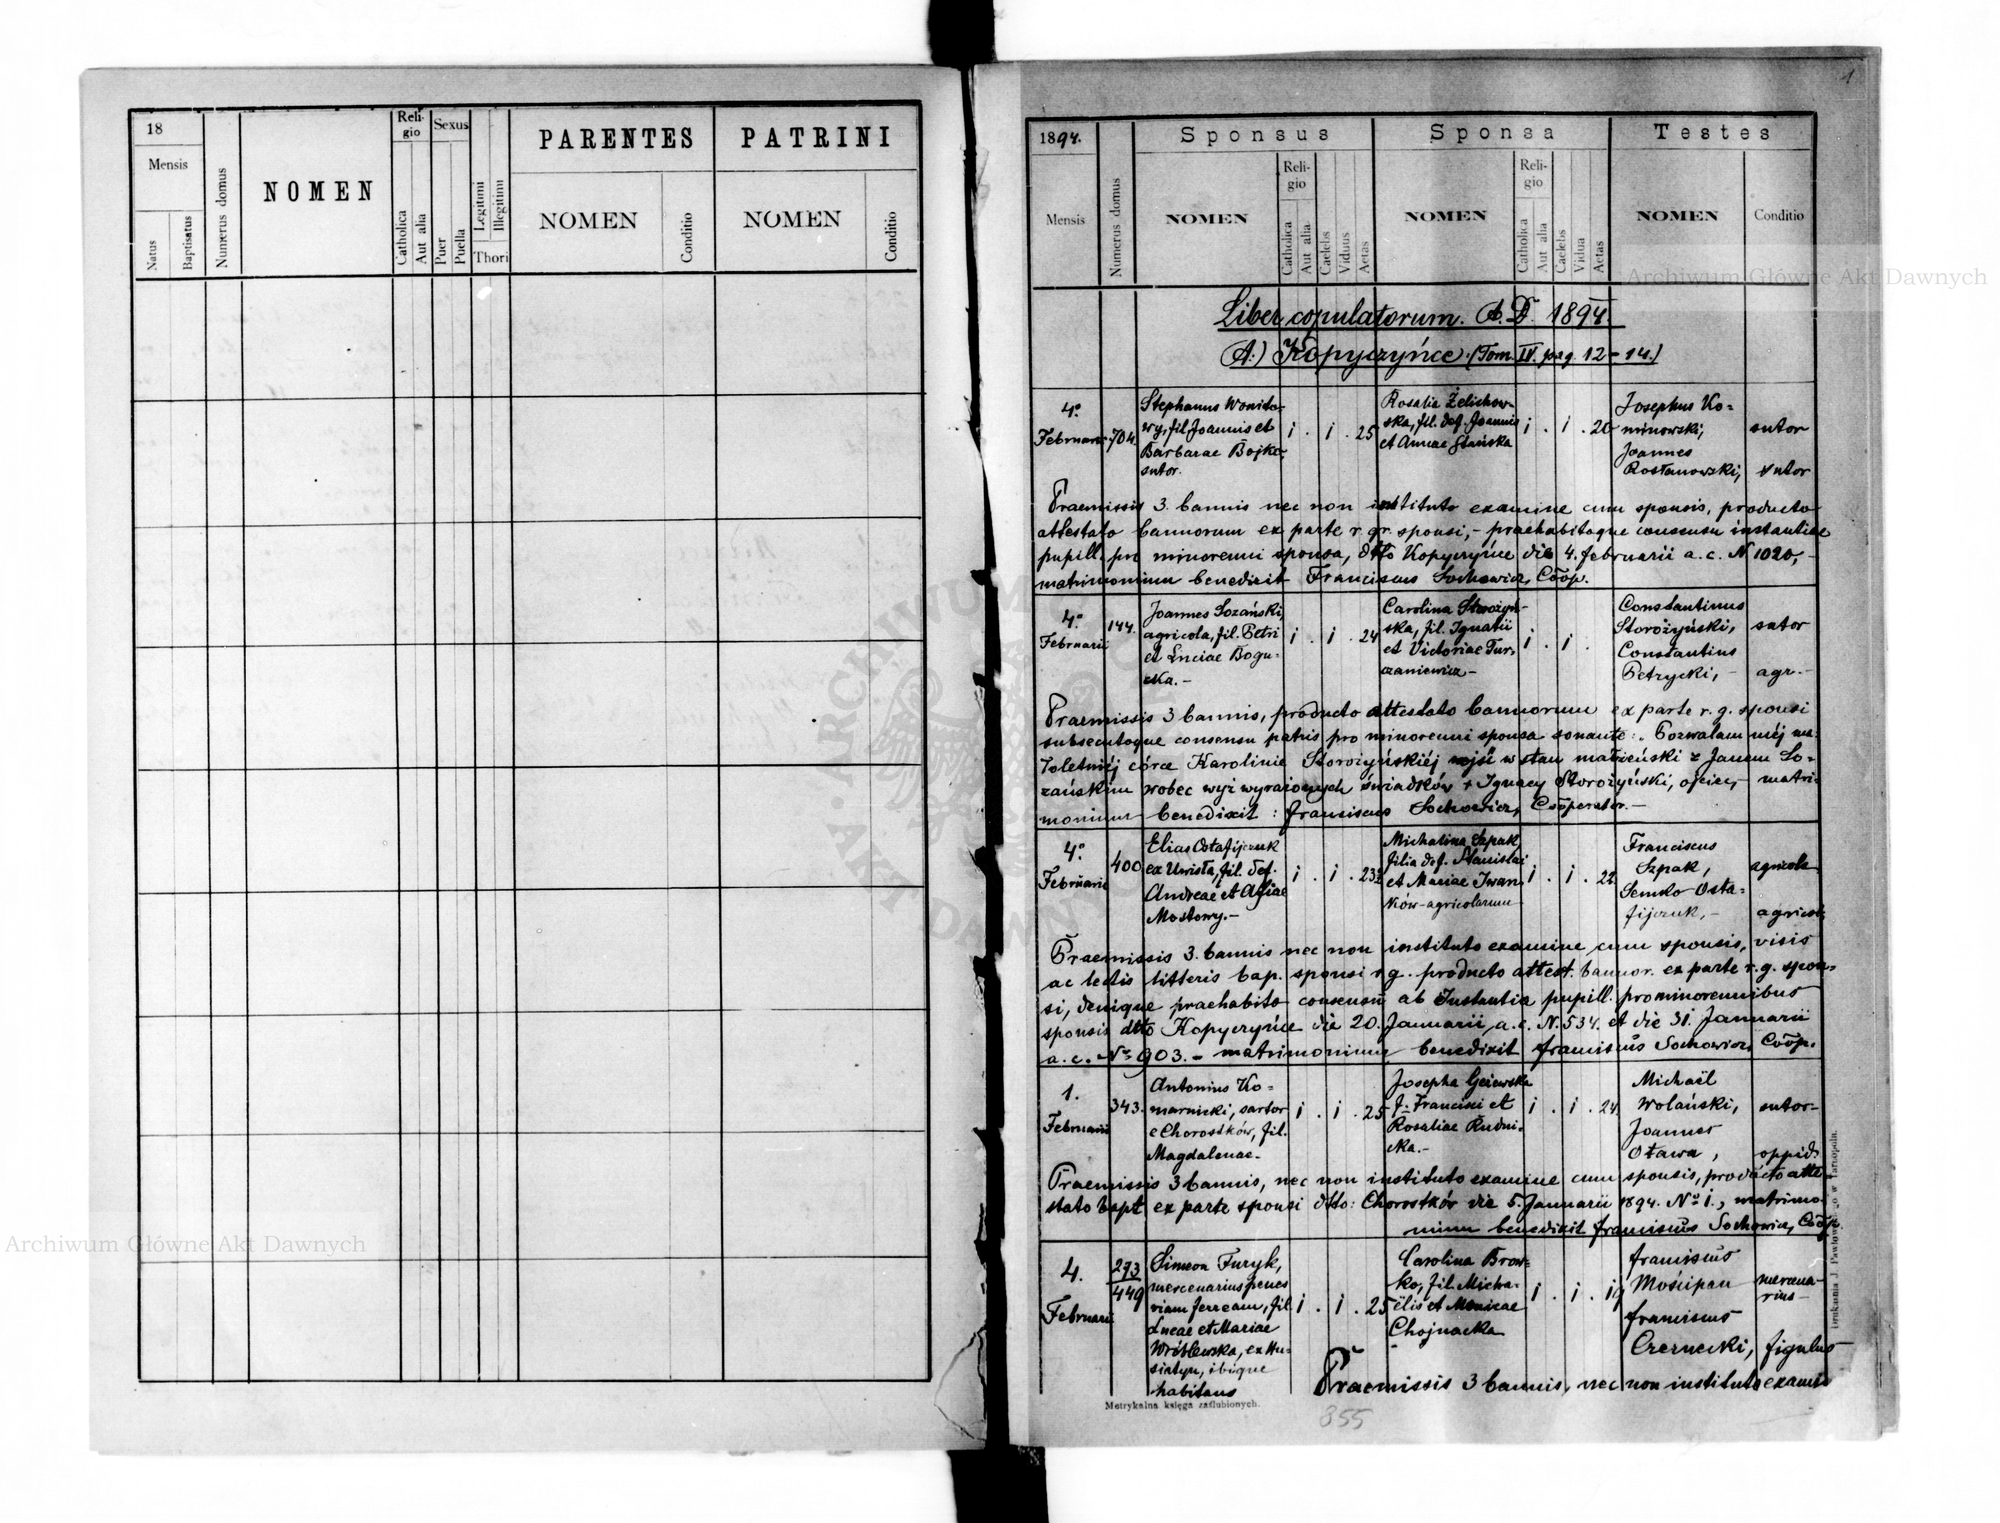 18
Mensis
Natus
Baptisatus
Numerus domus
NOMEN
Religio
Catholica
Aut alia
Sexus
Puer
Puella
Legitimi
Illegitimi
Thori
PARENTES
NOMEN
Conditio
PATRINI
NOMEN
Conditio
1
1894.
Mensis
Numerus domus
Sponsus
NOMEN
Reli-
gio
Catholica
Aut alia
Caelebs
Viduus
Aetas
Sponsa
NOMEN
Reli-
gio
Catholica
Aut alia
Caelebs
Vidua
Aetas
Testes
NOMEN
Conditio
Liber copulatorum. A. D. 1894.
A.) Kopyczyńce. (Tom. IV. pag. 12-14.)
4º
Februarii
704.
Stephanus
wy, fil. Joannis et
Barbarae Bojko,
sutor.
i . i . 25
Rosalia Żelichow-
ska, fil. def. Joannis
et Annae
i . i . 20
Josephus Ko-
minowski,
Joannes
Rostanowski,
sutor
sutor
Praemissis 3. bannis nec non instituto examine cum sponsis, producto
attestato bannorum ex parte r. gr. sponsi, - praehabitoque consensu instantiae
pupill. pro minorenni sponsa, dtto Kopyczyńce die 4. februarii a. c. N 1020, -
matrimonium benedixit Franciscus Sochowicz, Coop.
4º
Februarii
144.
Joannes Łozański,
agricola, fil. Petri
et Luciae Bogu-
cka. -
i . i . 24
Carolina Storożyń-
ska, fil. Ignatii
et Victoriae Tur-
czaniewicz -
i . i .
Constantinus
Storożyński,
Constantius
Petrycki, -
sutor
agr. -
Praemissis 3 bannis, producto attestato bannorum ex parte r. g. sponsi
subsecutoque consensu patris pro minorenni sponsa sonante: "Pozwalam méj ma-
łoletniéj córce Karolinie Storożyńskiéj wejść w stan małżeński z Janem Ło-
zańskim wobec wyż wyrażonych świadków + Ignacy Storożyński, ojciec, - matri-
monium benedixit : Franciscus Sochowicz, Cooperator. -
4º
Februarii
400
Elias Ostafijczuk
ex Uwisła, fil. def.
Andreae et Agiae
Mostowy. -
i . i . 23½
Michalina Szpak
filia def. Stanislai
et Mariae Iwan-
ków - agricolarum
i . i . 22.
Franciscus
Szpak,
Semko Osta-
fijczuk, -
agricola
agricola
Praemissis 3. bannis nec non instituto examine cum sponsis, visis
ac lectis litteris bap. sponsi r. g. producto attest. bannor. ex parte r. g. spon-
si, denique praehabito consensu ab Instantia pupill. pro minorennibus
sponsis dtto Kopyczyńce die 20. Januarii a. c. N. 534. et die 31. Januarii
a. c. Nº 903. - matrimonium benedixit Franciscus Sochowicz, Coop.
1.
Februarii
343.
Antonius Ko-
marnicki, sartor
e Chorostków, fil.
Magdalenae. -
i . i . 25
Josepha
f. Francisci et
Rosaliae Rudni-
cka. -
i . i . 24
Michaël
Wolański,
Joannes
Otawa,
sutor -
oppid.
Praemissis 3 bannis, nec non instituto examine cum sponsis, producto atte-
stato bapt. ex parte sponsi dtto: Chorostków die 5. Januarii 1894. Nº 1., matrimo-
nium benedixit Franciscus Sochowicz, Coop.
4.
Februarii
273
449
Simeon Furyk,
mercenarius penes
viam ferream, fil.
Lucae et Mariae
Wróblewska, ex Hu-
siatyn, ibique
habitans
i . i . 25
Carolina Brow-
ko, fil. Micha-
ëlis et Monicae
Chojnacka
i . i . 19
Franciscus
Mościpan
Franciscus
Czernecki,
mercena-
rius -
figulus
Praemissis 3 bannis, nec non instituto examine
Metrykalna księga zaślubionych.
855
Drukarnia J. Pawłowskiego w Tarnopolu.
Archiwum Główne Akt Dawnych
Archiwum Główne Akt Dawnych
ARCHIWUM GŁÓWNE AKT DAWNYCH